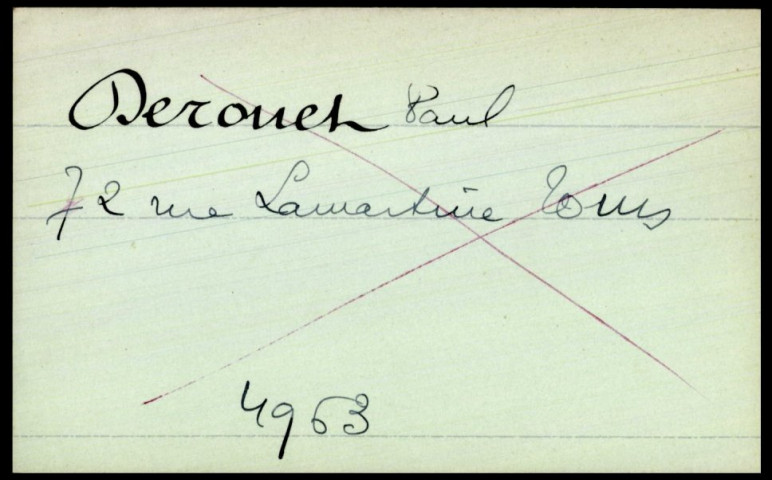 Derouet Paul
72 rue Lamartine Tours
4963